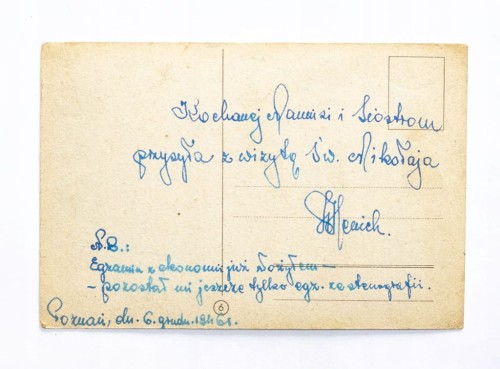 Kochanej Mamusi i Siostrom
przysyła z wizytą Św. Mikołaja
Henich.
N.B.:
Egzamin z ekonomii już złożyłem –
– pozostał mi jeszcze tylko egz. ze stenografii.
Poznań, dn. 6. grudn. 1946r.
6